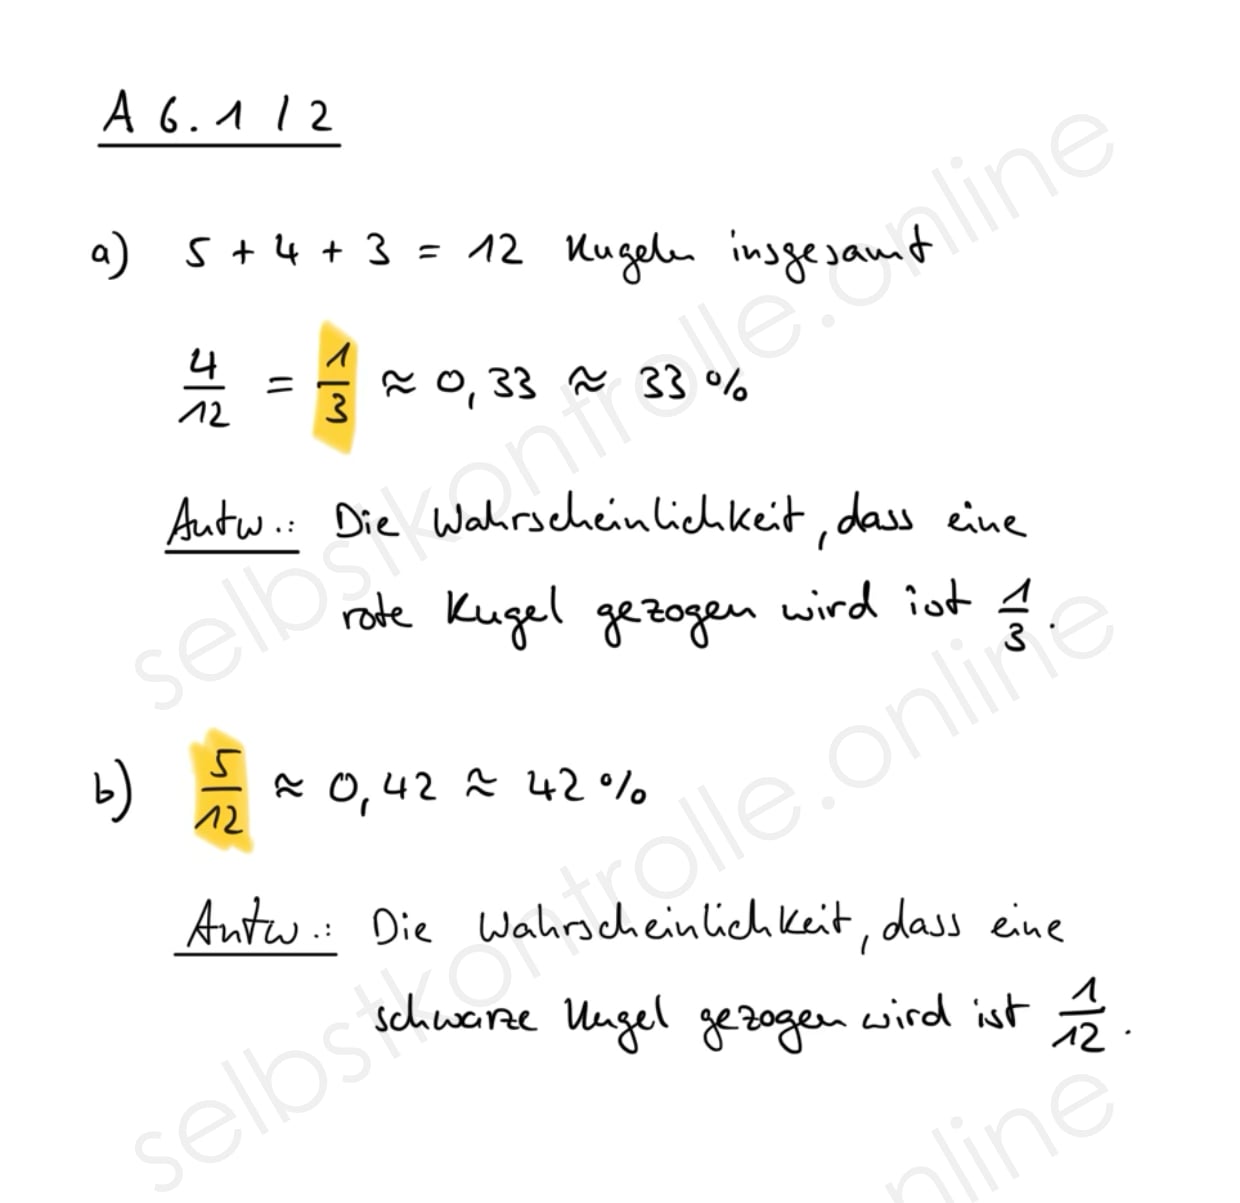 A 6.1 / 2
a) 5 + 4 + 3 = 12 Kugeln insgesamt
4/12 = 1/3 ≈ 0,33 ≈ 33 %
Antw.: Die Wahrscheinlichkeit, dass eine
rote Kugel gezogen wird ist 1/3.
b) 5/12 ≈ 0,42 ≈ 42 %
Antw.: Die Wahrscheinlichkeit, dass eine
schwarze Kugel gezogen wird ist 1/12.
selbstkontrolle.online
selbstkontrolle.online
nline